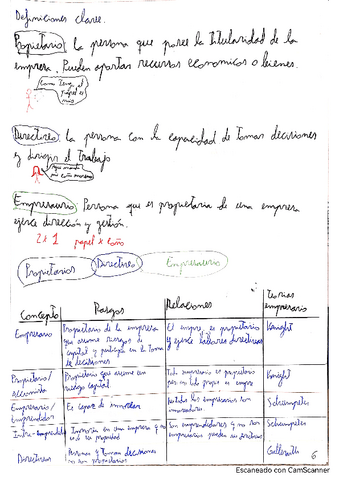 Definiciones clases.
Propietario la persona que posee la titularidad de la
empresa. Pueden aportar recursos economicos o bienes.
Como tengo el
papel es
mio
Directores la persona con la capacidad de tomar decisiones
y dirigir el trabajo
Empresario Persona que es propietaria de una empresa
ejerce dirección y gestión.
2x1 papel x
Propietarios Directores Empresario
Concepto Rasgos Relaciones teorias
empresario
Empresario Propietario de la empresa
que asume riesgos de
capital y participa en la toma
de decisiones
es propietario
y ejerce labores directivas
Knight
Propietario/
accionista
Propietario que asume un
riesgo capital
Todo empresario es propietario
pero no todo
Knight
Empresario/
Emprendedor
Es capaz de innovar
los empresarios son
innovadores
Schumpeter
Intra-emprendedor Innovación en una empresa
su propiedad
Son emprendedores y no son
empresarios pueden ser directivos
Schumpeter
Directivos Personas toman decisiones
no son propietarios
6
Escaneado con CamScanner